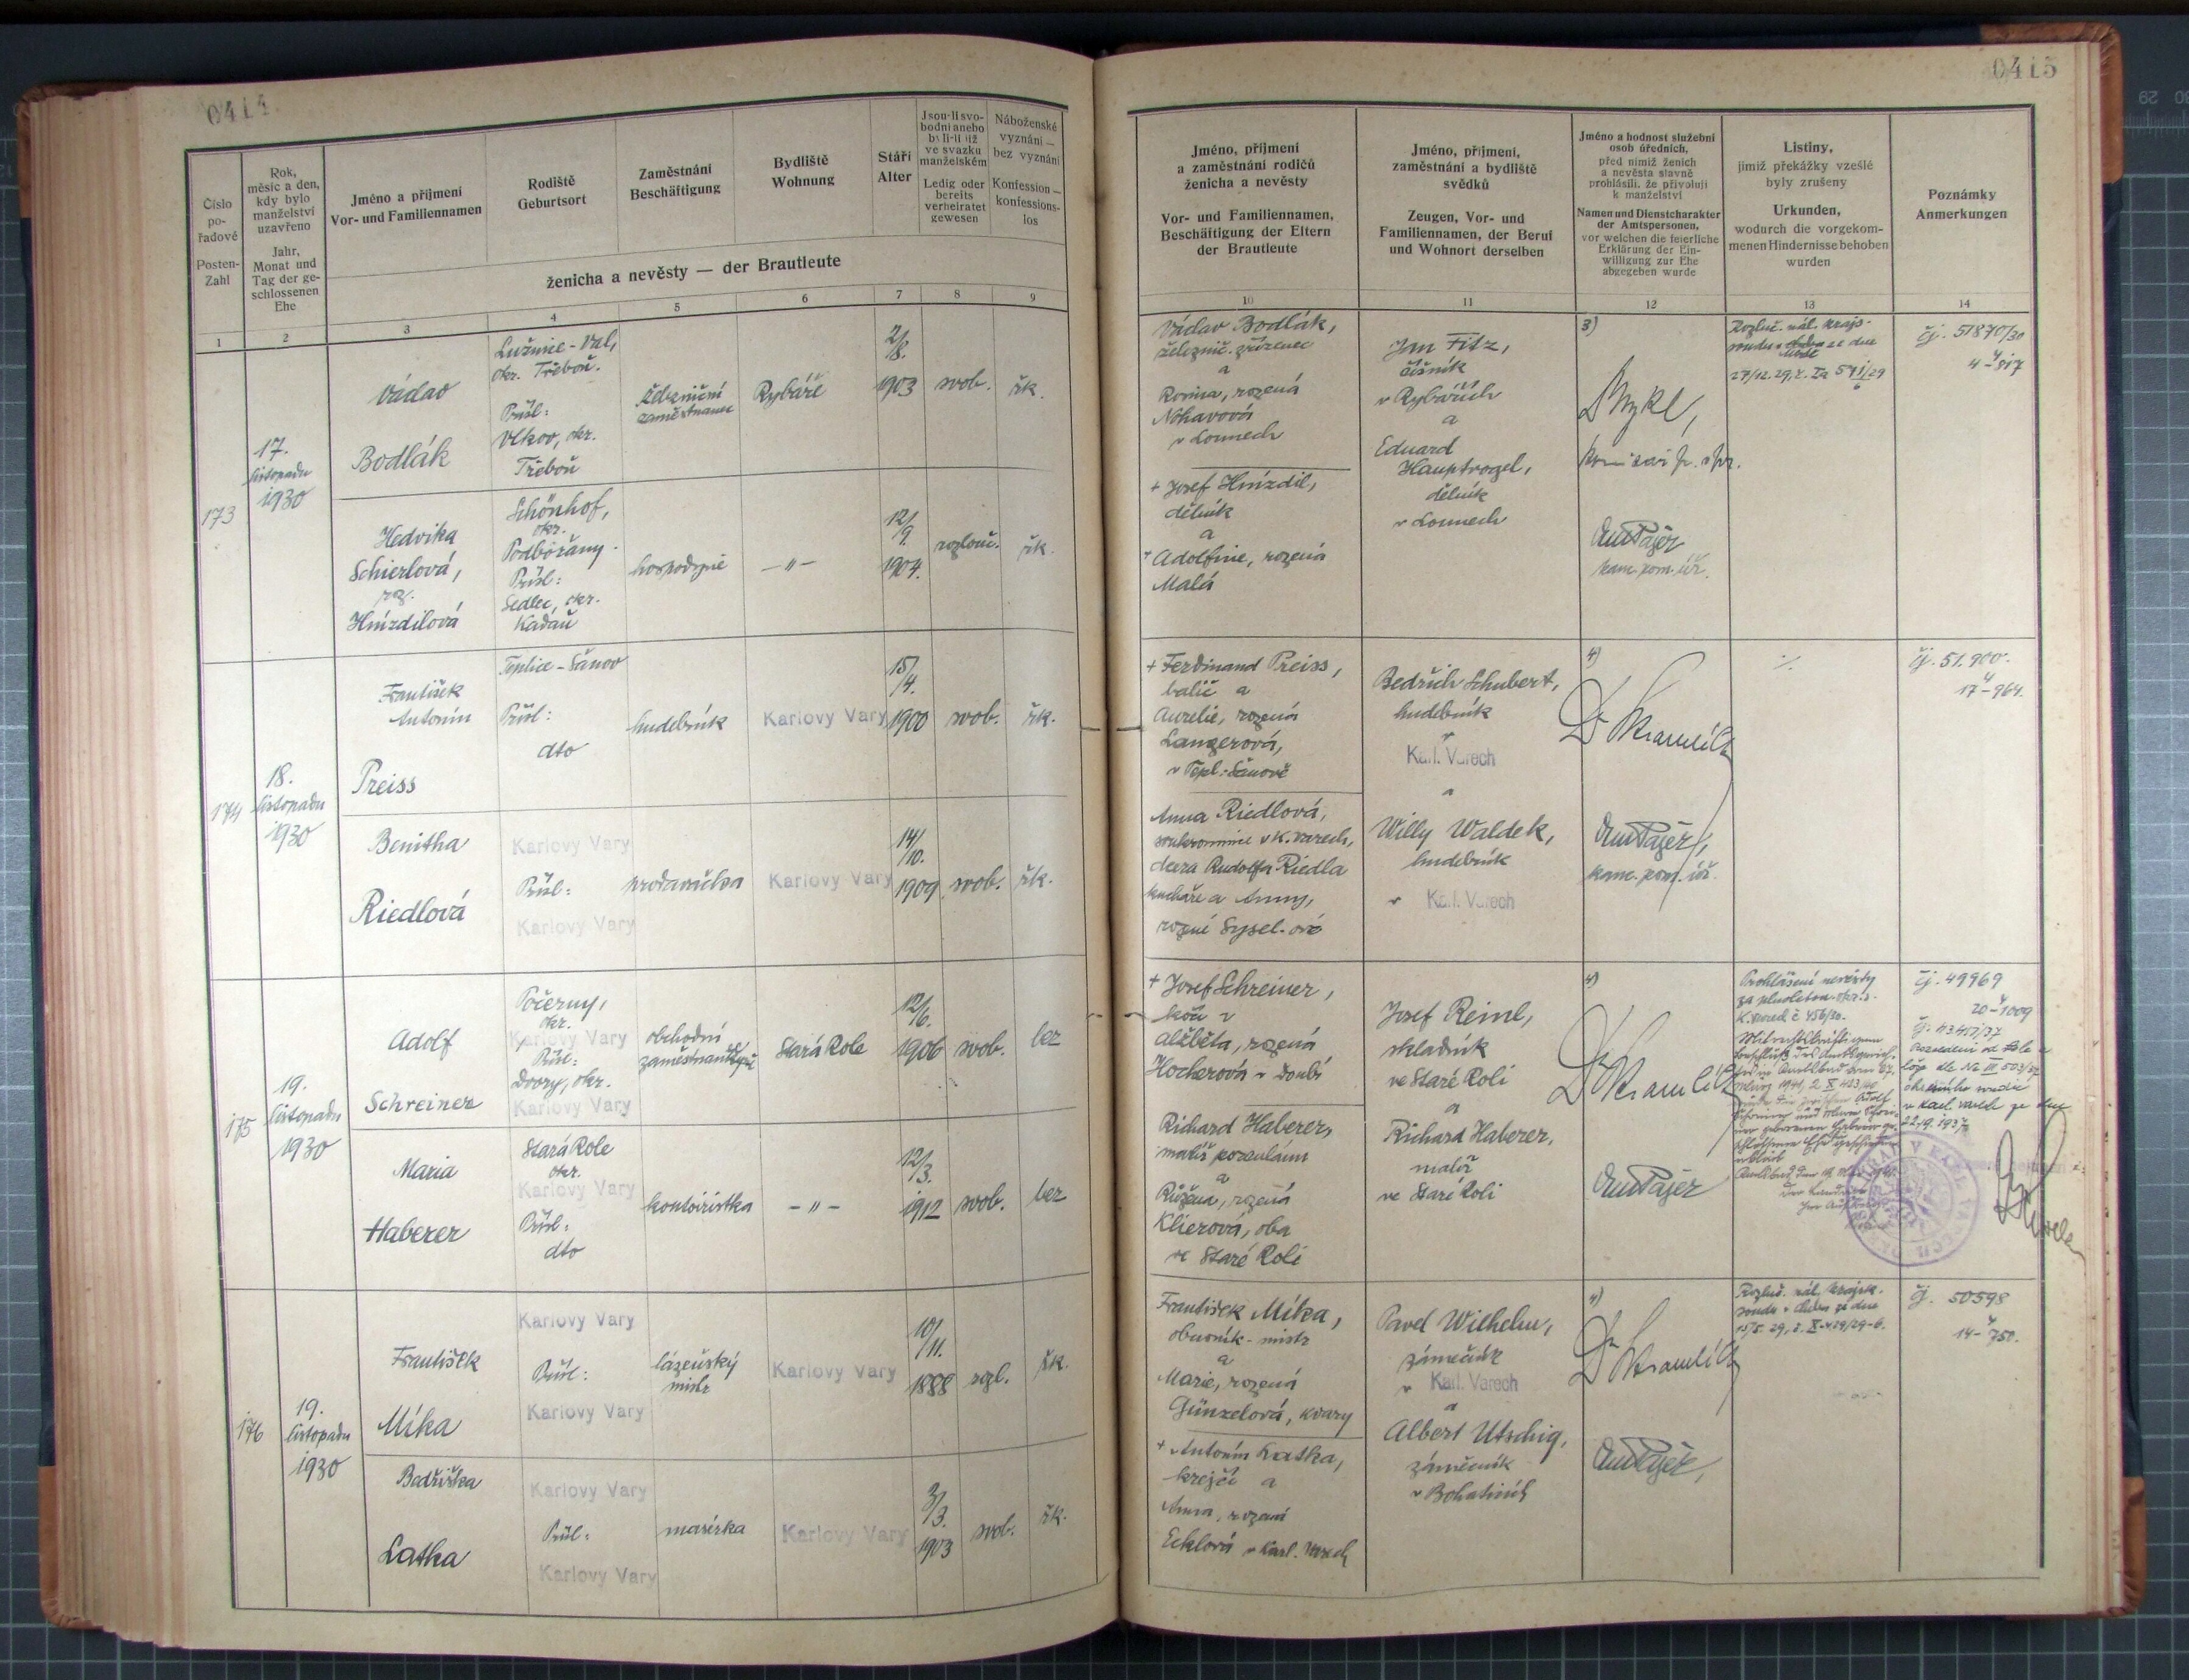 0414
Číslo
po-
řadové
Posten-
Zahl
Rok,
měsíc a den,
kdy bylo
manželství
uzavřeno
Jahr,
Monat und
Tag der ge-
schlossenen
Ehe
Jméno a příjmení
Vor- und Familiennamen
Rodiště
Geburtsort
Zaměstnání
Beschäftigung
Bydliště
Wohnung
Stáří
Alter
Jsou-li svo-
bodni anebo
byli-li již
ve svazku
manželském
Ledig oder
bereits
verheiratet
gewesen
Náboženské
vyznání —
bez vyznání
Konfession —
konfessions-
los
ženicha a nevěsty — der Brautleute
1
2
3
4
5
6
7
8
9
173
17.
listopadu
1930
Václav
Bodlák
Lužnice - Val,
okr. Třeboň.
Přísl:
Vlkov, okr.
Třeboň
železniční
zaměstnanec
Rybáře
2/8.
1903
svob.
řk.
Hedvika
Schierlová,
roz.
Hnízdilová
Schönhof,
okr.
Podbořany.
Přísl:
Sedlec, okr.
Kadaň
hospodyně
- " -
12/9.
1904.
rozlouč.
řk.
174
18.
listopadu
1930
František
Antonín
Preiss
Teplice - Šanov
Přísl:
dto
hudebník
Karlovy Vary
15/4.
1900
svob.
řk.
Benitha
Riedlová
Karlovy Vary
Přísl:
Karlovy Vary
prodavačka
Karlovy Vary
14/10.
1909
svob.
řk.
175
19.
listopadu
1930
Adolf
Schreiner
Počerny,
okr.
Karlovy Vary
Přísl:
Dvory, okr.
Karlovy Vary
obchodní
Stará Role
12/6.
1906
svob.
bez
Maria
Haberer
Stará Role
okr.
Karlovy Vary
Přísl:
dto
kontoiristka
- " -
12/3.
1912
svob.
bez
176
19.
listopadu
1930
František
Míka
Karlovy Vary
Přísl:
Karlovy Vary
lázeňský
mistr
Karlovy Vary
10/11.
1888
rozl.
řk.
Bedřiška
Latka
Karlovy Vary
Přísl:
Karlovy Vary
masérka
Karlovy Vary
3/3.
1903
svob.
řk.
0415
Jméno, příjmení
a zaměstnání rodičů
ženicha a nevěsty
Vor- und Familiennamen,
Beschäftigung der Eltern
der Brautleute
Jméno, příjmení,
zaměstnání a bydliště
svědků
Zeugen, Vor- und
Familiennamen, der Beruf
und Wohnort derselben
Jméno a hodnost služební
osob úředních,
před nimiž ženich
a nevěsta slavně
prohlásili, že přivolují
k manželství
Namen und Dienstcharakter
der Amtspersonen,
vor welchen die feierliche
Erklärung der Ein-
willigung zur Ehe
abgegeben wurde
Listiny,
jimiž překážky vzešlé
byly zrušeny
Urkunden,
wodurch die vorgekom-
menen Hindernisse behoben
wurden
Poznámky
Anmerkungen
10
11
12
13
14
Václav Bodlák,
železnič. zřízenec
a
Rosina, rozená
Nohavová
v Lounech
+ Josef Hnízdil,
dělník
a
+ Adolfine, rozená
Malá
Jan Fitz,
číšník
v Rybářích
a
Eduard
Hauptvogel,
dělník
v Lounech
3)
kanc. pom. úř.
Rozluč. nál. krajs.
soudu
ze dne
čj. 51870/30
+ Ferdinand Preiss,
balič a
Aurelie, rozená
Langerová,
v Tepl.-Šanově
Anna Riedlová,
soukromnice v K. Varech,
dcera Rudolfa Riedla
kuchaře a Anny,
rozené Sysel-ové
Bedřich Schubert,
hudebník
v
Karl. Varech
a
Willy Waldek,
hudebník
v Karl. Varech
4)
kanc. pom. úř.
./.
čj. 51.900.
17-964.
+ Josef Schreiner,
kočí a
Alžběta, rozená
Hocherová v Doubí
Richard Haberer,
malíř porculánu
a
Růžena, rozená
Klierová, oba
ve Staré Roli
Josef Reinl,
skladník
ve Staré Roli
a
Richard Haberer,
malíř
ve Staré Roli
4)
Prohlášení nevěsty
za plnoletou
čj. 49969
20-1009
František Míka,
obuvník - mistr
a
Marie, rozená
Günzelová, Kvary
+ Antonín Latka,
krejčí a
Anna, rozená
Ecklová v Karl. Varech
Pavel Wilhelm,
zámečník
v Karl. Varech
a
Albert Utschig,
zámečník
v Bohaticích
4)
Rozluč. nál. krajsk.
soudu v Chebu ze dne
čj. 50598
14-750.